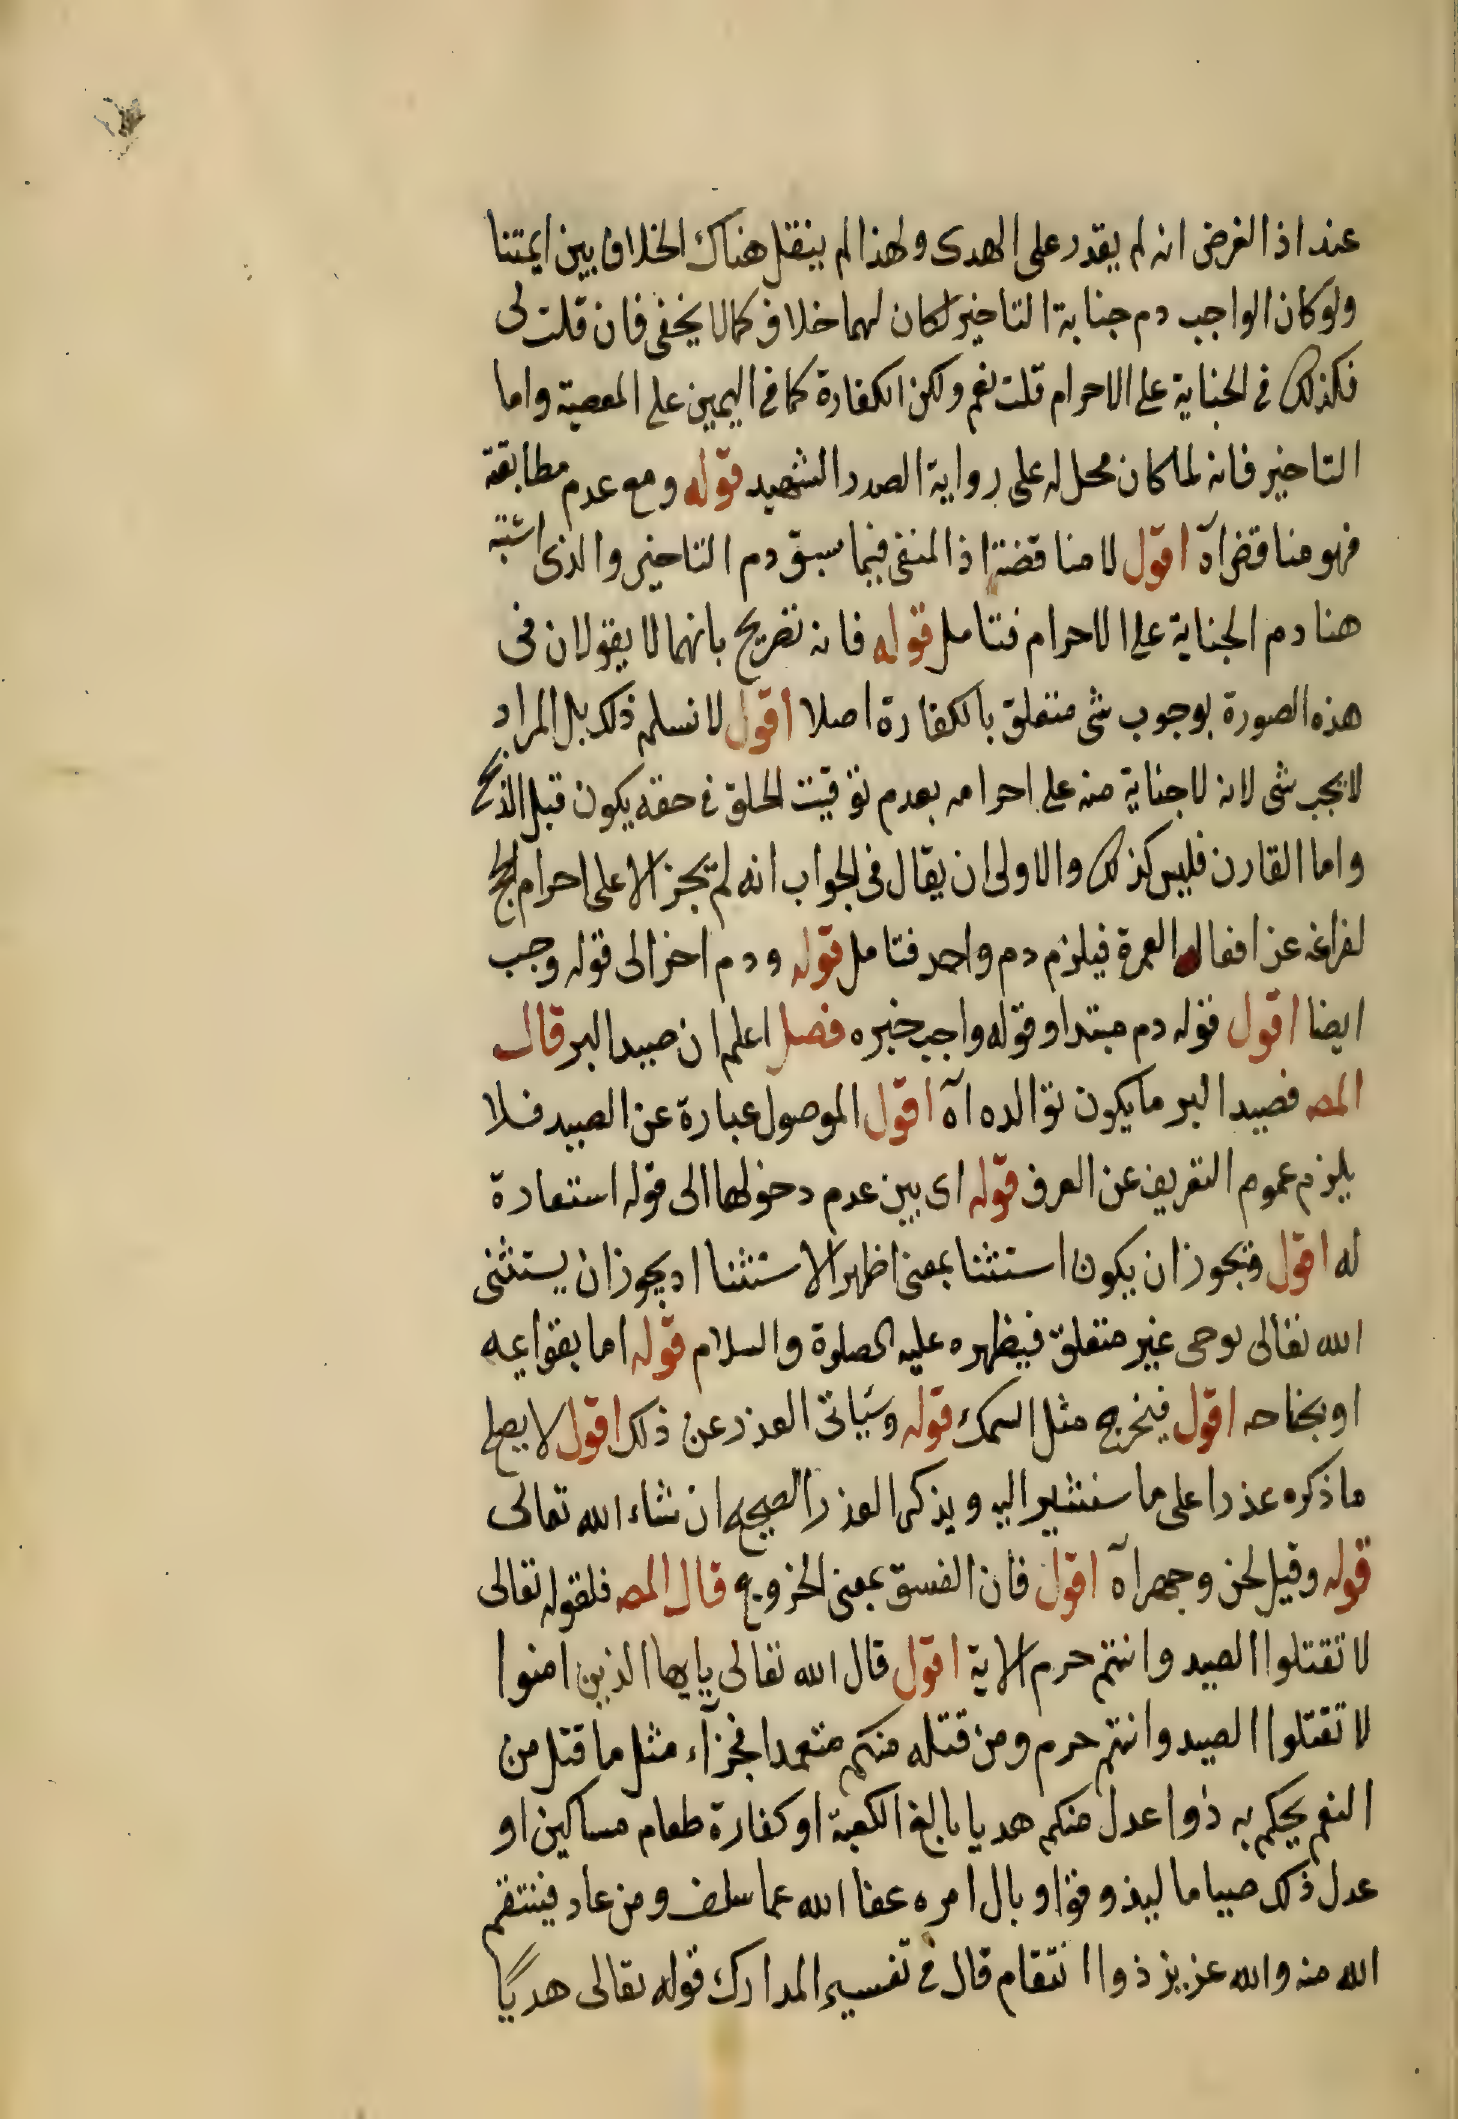 عند اذ الفرض انه لم يقدر على الهدى ولهذا لم ينقل هناك الخلاف بين ايمتنا
ولو كان الواجب دم جناية التاخير لكان لهما خلاف كما لا يخفى فان قلت لى
فكذلك فى الجناية على الاحرام قلت نعم ولكن الكفارة كما فى اليمين على المعصية واما
التاخير فانه لما كان محل له على رواية الصدر الشهيد قوله ومع عدم مطابقة
فهو مناقض اه اقول لا مناقضة اذ المنفى فيما سبق دم التاخير والذى اثبته
هنا دم الجناية على الاحرام فتامل قوله فانه تصريح بانهما لا يقولان فى
هذه الصورة بوجوب شى متعلق بالكفارة اصلا اقول لا نسلم ذلك بل المراد
لا يجب شى لانه لا جناية منه على احرامه بعدم توقيت الحلق فى حقه يكون قبل الذبح
واما القارن فليس كذلك والاولى ان يقال فى الجواب انه لم يجز الا على احرام الحج
لفراغه عن افعال العمرة فيلزم دم واحد فتامل قوله ودم اخر الى قوله وجب
ايضا اقول قوله دم مبتدا وقوله واجب خبره فصل اعلم ان صيد البر قال
المصه فصيد البر ما يكون توالده اه اقول الموصول عبارة عن الصيد فلا
يلزم عموم التعريف عن العرف قوله اى بين عدم دخولها الى قوله استعارة
له اقول فيجوز ان يكون استثنا بمعنى اظهر الاستثنا اذ يجوز ان يستثنى
الله تعالى بوحى غير متعلق فيظهره عليه الصلوة والسلام قوله اما بقوايمه
او بجناحه اقول فيخرج مثل السمك قوله وسياتى العذر عن ذلك اقول لا يصلح
ما ذكره عذرا على ما سنشير اليه ويذكر العذر الصحيح ان شاء الله تعالى
قوله وقيل لخن وجهه اه اقول فان الفسق بمعنى الخروج قال المصه فلقوله تعالى
لا تقتلوا الصيد وانتم حرم الاية اقول قال الله تعالى يايها الذين امنوا
لا تقتلوا الصيد وانتم حرم ومن قتله منكم متعمدا فجزآء مثل ما قتل من
النعم يحكم به ذوا عدل منكم هديا بالغ الكعبة او كفارة طعام مساكين او
عدل ذلك صياما ليذوقوا وبال امره عفا الله عما سلف ومن عاد فينتقم
الله منه والله عزيز ذوا انتقام قال فى تفسير المدارك قوله تعالى هديًا